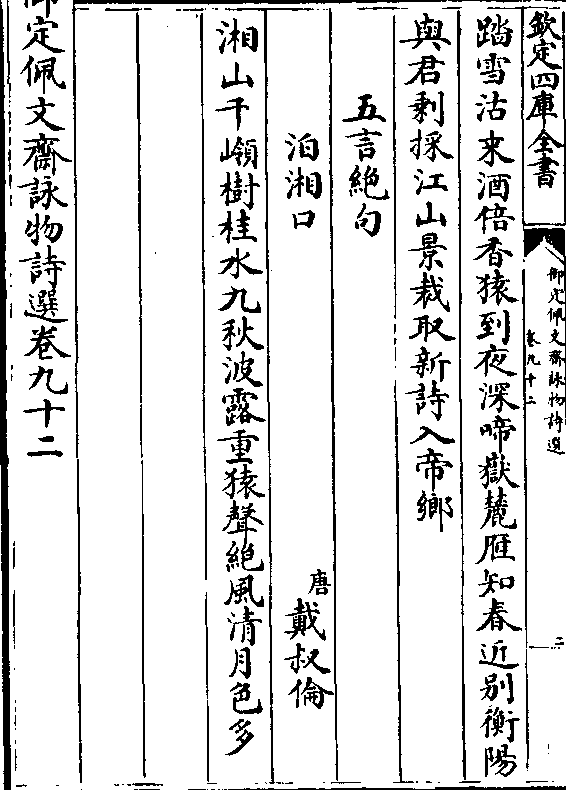 欽定四庫全書
御定佩文齋詠物詩選
卷九十二
二
踏雪沽来酒倍香猿到夜深啼嶽麓雁知春近别衡陽
與君剩採江山景裁取新詩入帝鄉
五言絶句
泊湘口
唐戴叔倫
湘山千嶺樹桂水九秋波露重猿聲絶風清月色多
御定佩文齋詠物詩選卷九十二